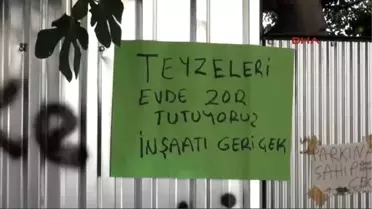 TEYZELERİ
EVDE ZOR
TUTUYORUZ
İNŞAATI GERİ ÇEK
PARKINA
SAHİP
ÇIK